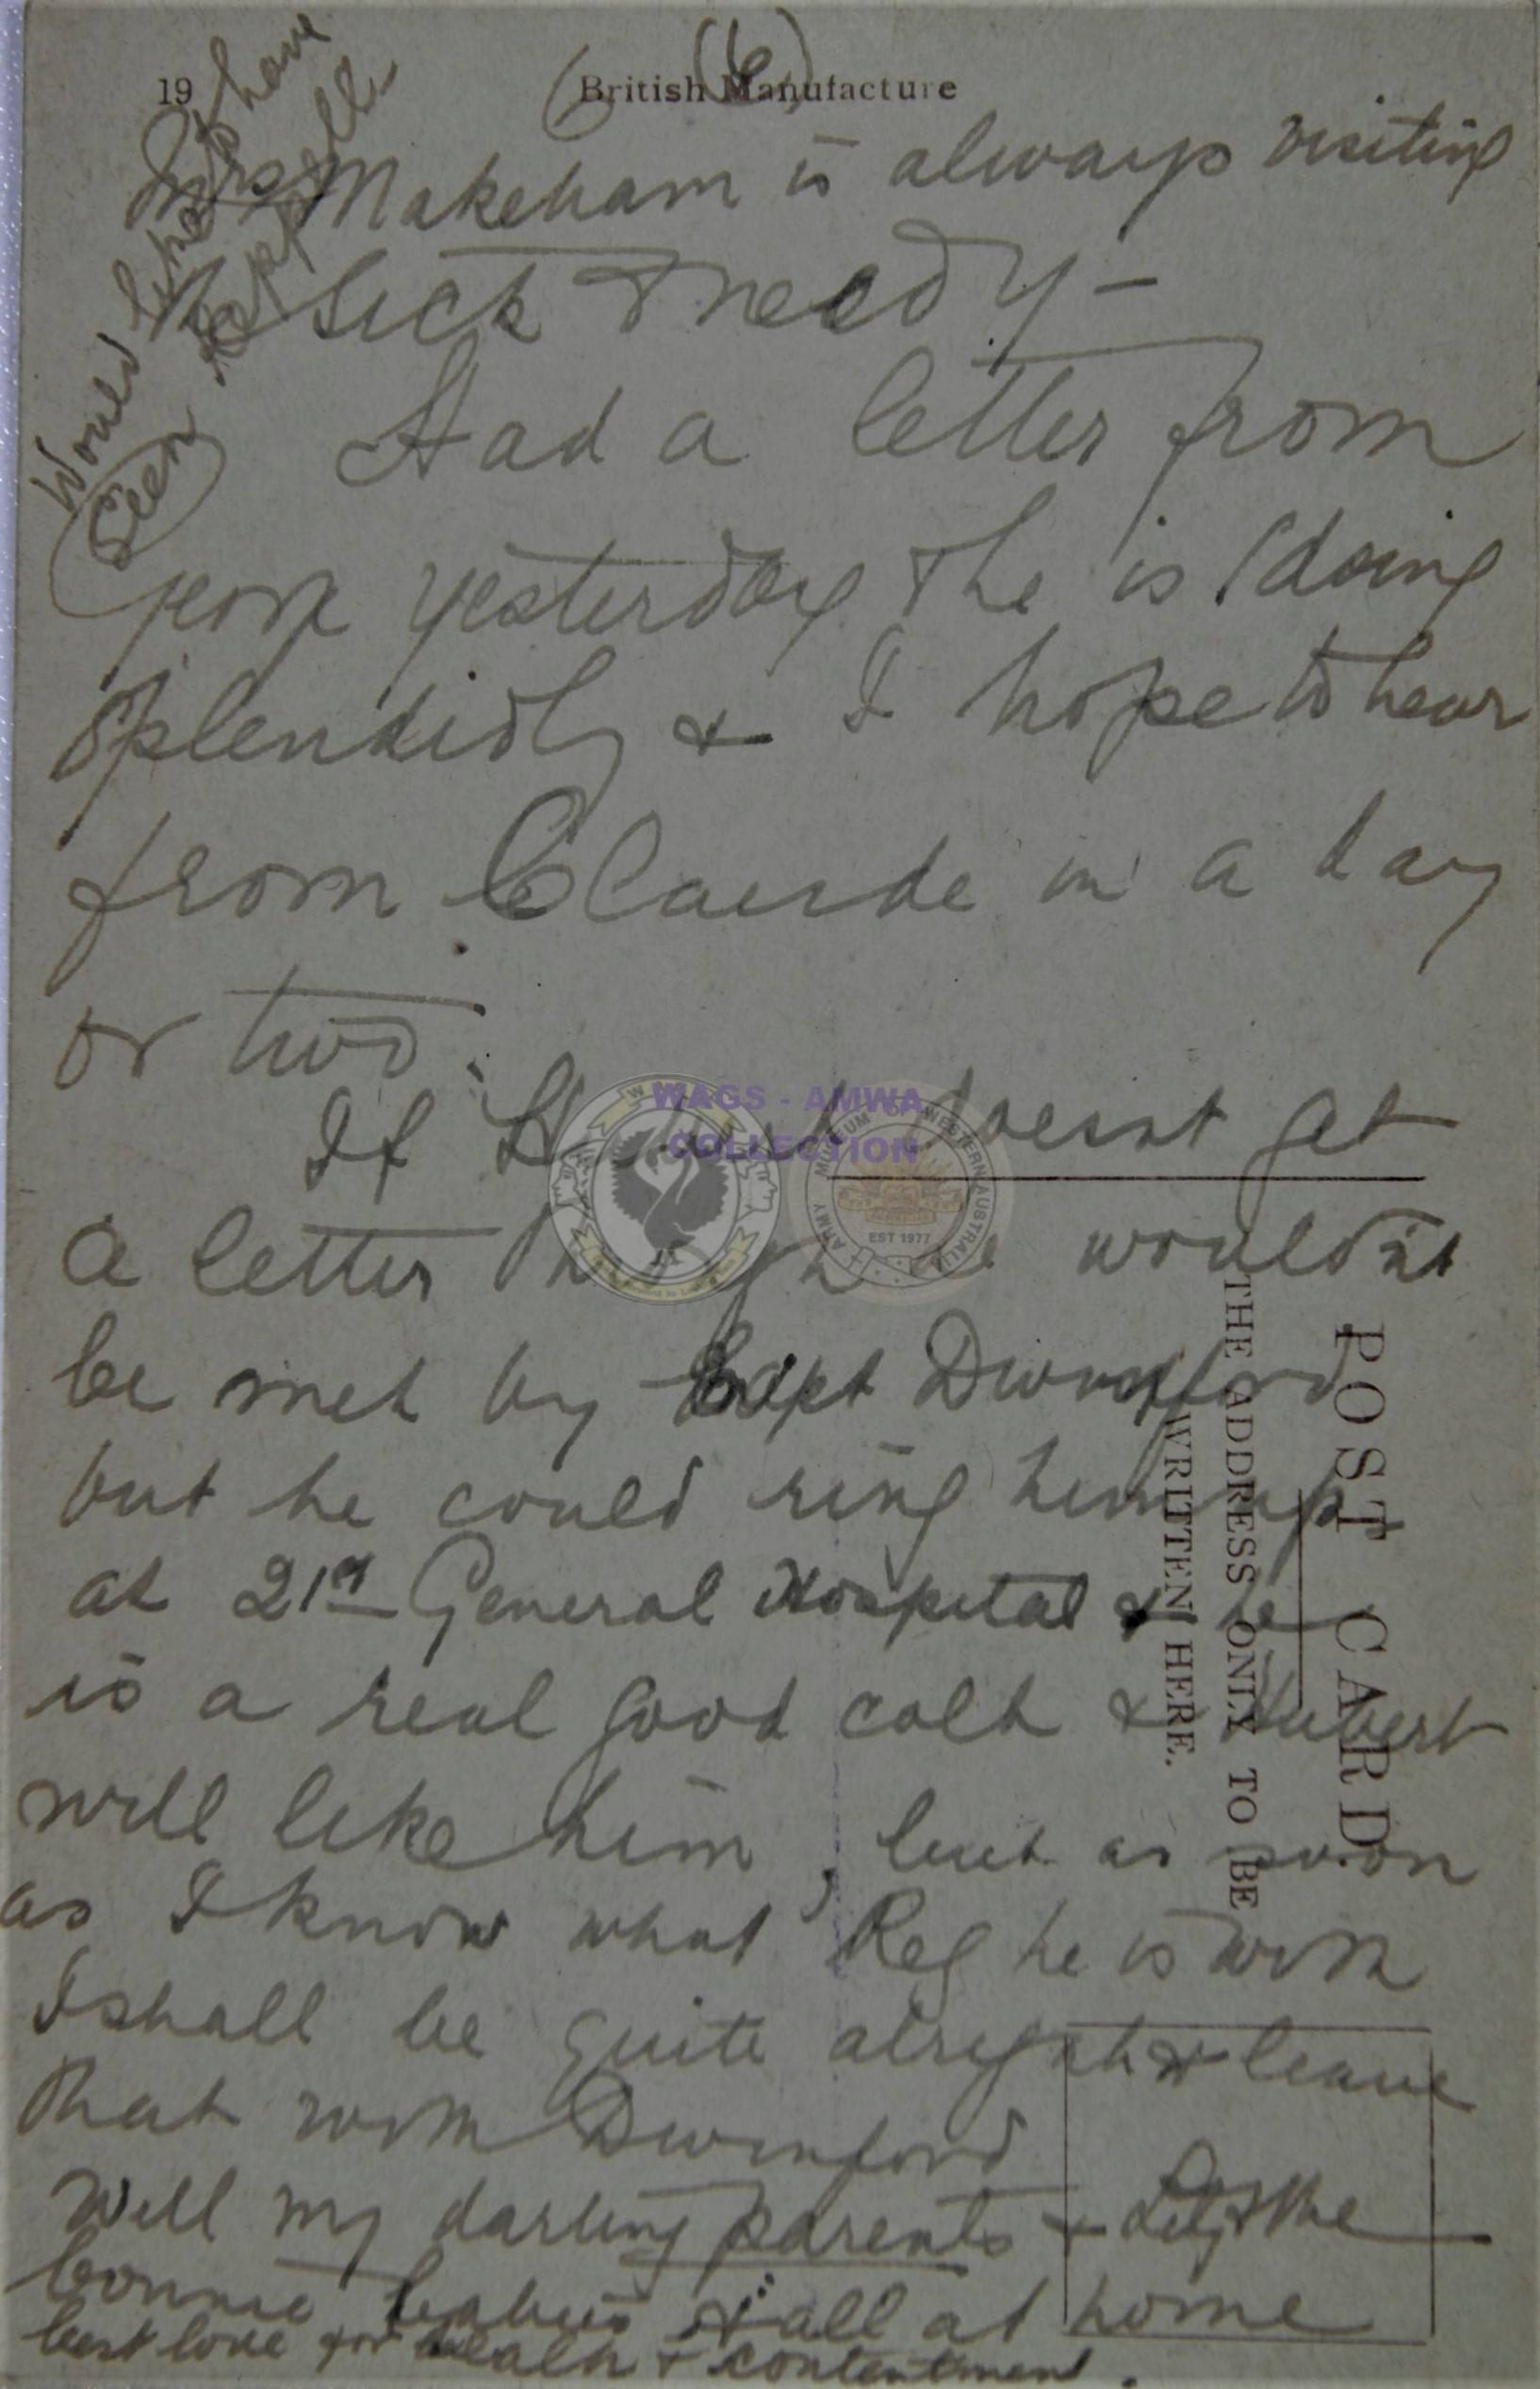 19
British Manufacture
(6)
Would perhaps have
seen
Mrs Makeham is always visiting
sick & needy -
Had a letter from
yesterday & he is doing
splendidly & I hope to hear
from Claude in a day
or two.
If doesnt get
a letter wouldnt
be met by Capt Durnford
but he could ring him up
at 21st General Hospital & he
is a real good colt & Hubert
will like him, but as soon
as I know what Reg he is with
I shall be quite alright & leave
that with Durnford
Well my darling parents &
bonnie babies & all at home
best love for health & contentment.
WAGS - AMWA
COLLECTION
ARMY MUSEUM OF WESTERN AUSTRALIA
EST 1977
POST CARD
THE ADDRESS ONLY TO BE
WRITTEN HERE.